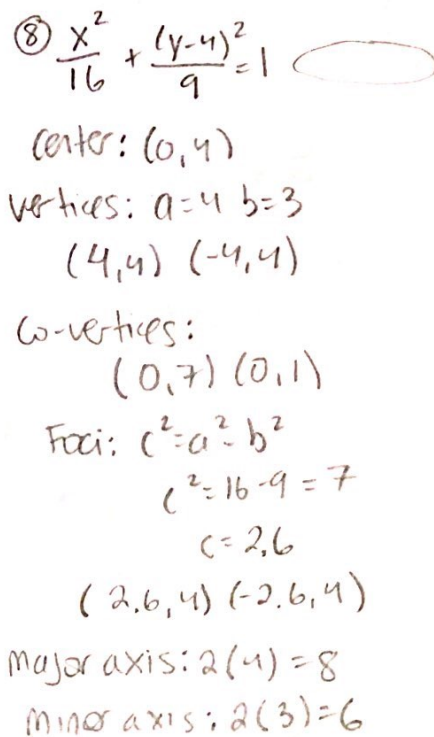 ⑧ x²/16 + (y-4)²/9 = 1
Center: (0,4)
vertices: a=4 b=3
(4,4) (-4,4)
Co-vertices:
(0,7) (0,1)
Foci: c²=a²-b²
c²=16-9=7
c=2.6
(2.6,4) (-2.6,4)
Major axis: 2(4)=8
Minor axis: 2(3)=6